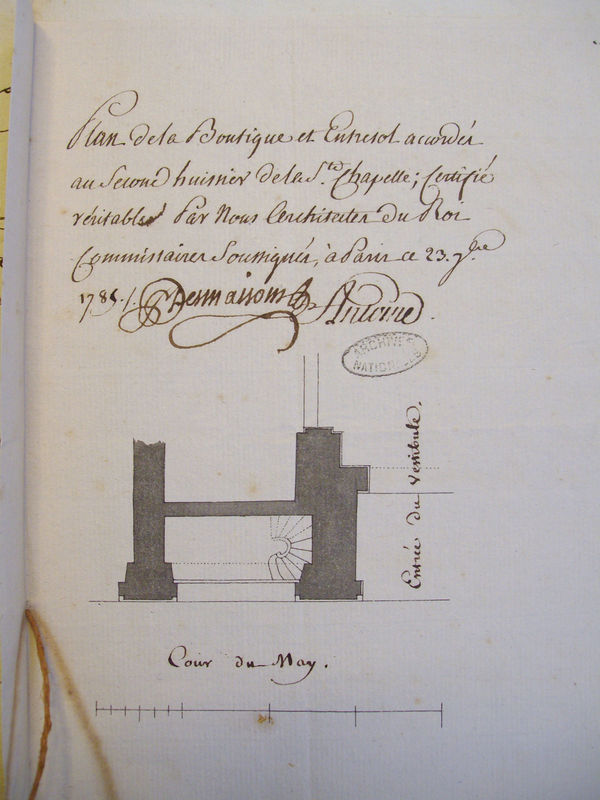 Plan de la Boutique et Entresol accordés
au Second huissier de la S.te Chapelle; Certifié
véritable Par Nous Architectes du Roi
Commissaires Soussignés, à Paris ce 23. 7bre
1785./. Desmaisons Antoine.
ARCHIVES
NATIONALES
Entrée du Vestibule.
Cour du May.